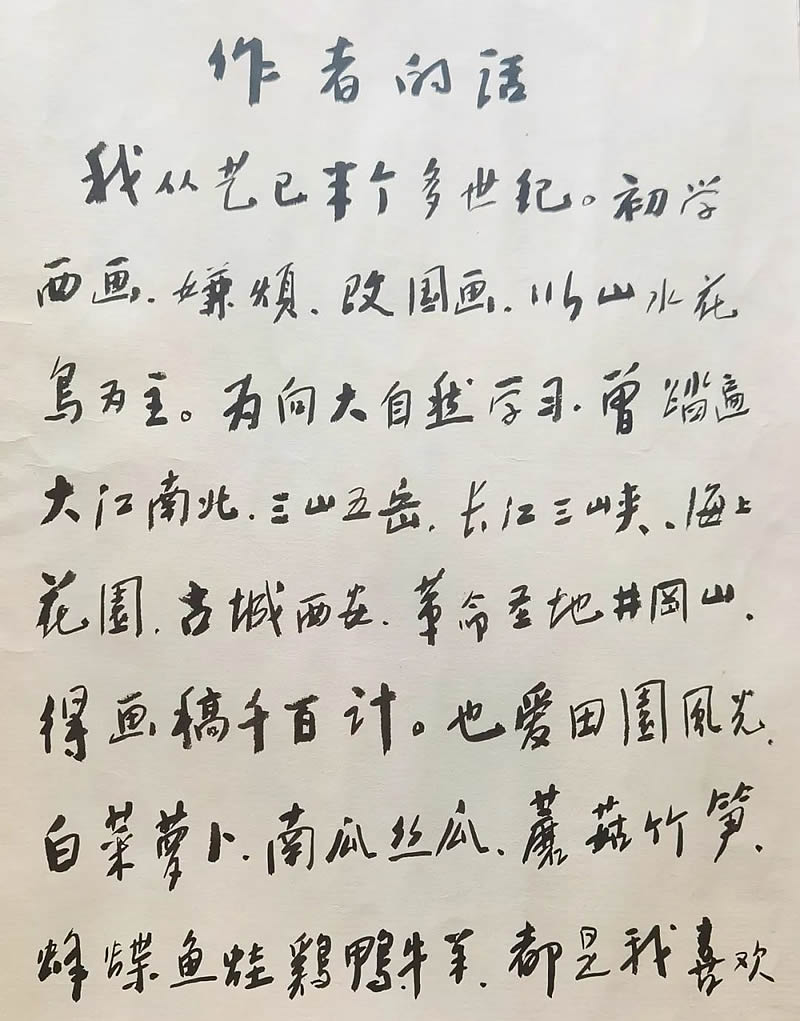 作者的话
我从艺已半个多世纪。初学
西画、嫌烦、改国画、以山水花
鸟为主。为向大自然学习、曾踏遍
大江南北、三山五岳、长江三峡、海上
花園、古城西安、革命圣地井岡山、
得画稿千百计。也愛田園風光、
白菜萝卜、南瓜丝瓜、蘑菇竹笋、
蜂蝶鱼蛙鷄鴨牛羊、都是我喜欢